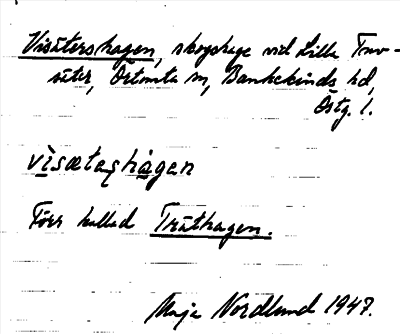 Visätershagen, skogshage vid Lilla Tuv-
säter, Örtomta sn, Bankekinds hd,
Östg. l.
visætashagen
Förr kallad Träthagen.
Maja Nordlund 1947.